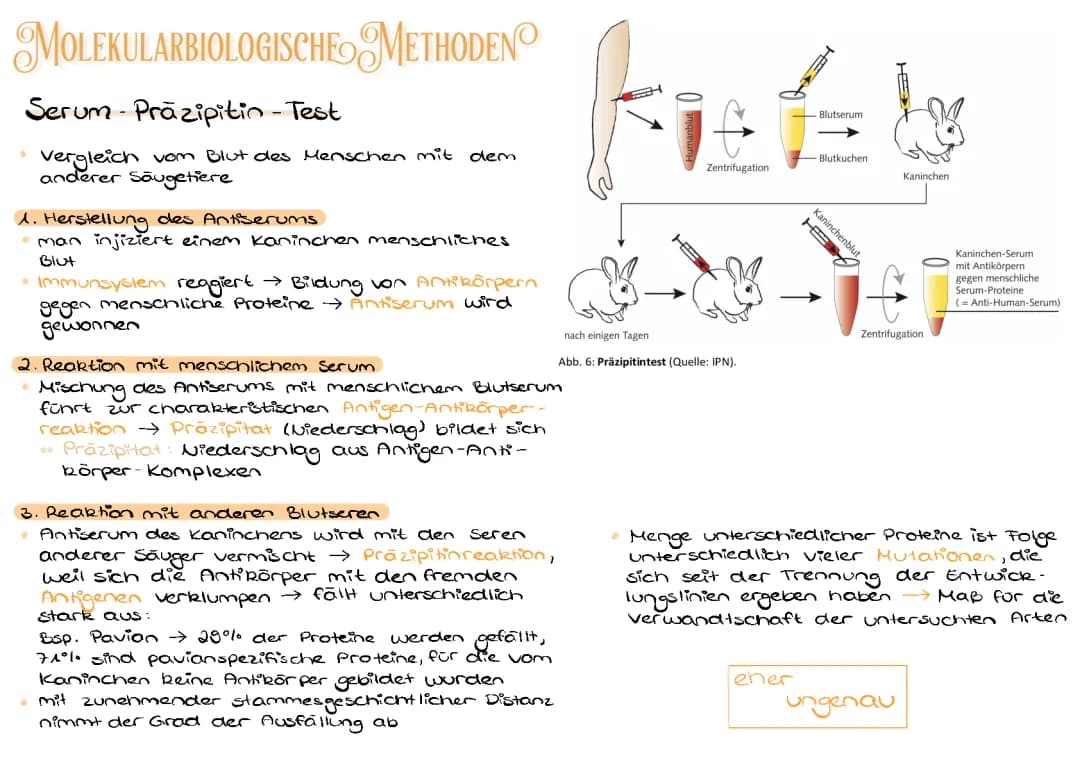 MOLEKULARBIOLOGISCHE METHODEN
Serum - Präzipitin - Test
• Vergleich vom Blut des Menschen mit dem
anderer Säugetiere
1. Herstellung des Antiserums
• man injiziert einem Kaninchen menschliches
Blut
• Immunsystem reagiert → Bildung von Antikörpern
gegen menschliche Proteine → Antiserum wird
gewonnen
2. Reaktion mit menschlichem Serum
• Mischung des Antiserums mit menschlichem Blutserum
führt zur charakteristischen Antigen-Antikörper-
reaktion → Präzipitat (Niederschlag) bildet sich
Präzipitat: Niederschlag aus Antigen-Anti-
körper-Komplexen
3. Reaktion mit anderen Blutseren
• Antiserum des Kaninchens wird mit den Seren
anderer Säuger vermischt → Präzipitinreaktion,
weil sich die Antikörper mit den fremden
Antigenen verklumpen → fällt unterschiedlich
stark aus:
Bsp. Pavian → 28% der Proteine werden gefällt,
71% sind pavianspezifische Proteine, für die vom
Kaninchen keine Antikörper gebildet wurden
• mit zunehmender stammesgeschichtlicher Distanz
nimmt der Grad der Ausfällung ab
Humanblut
Zentrifugation
Blutserum
Blutkuchen
Kaninchen
nach einigen Tagen
Kaninchenblut
Zentrifugation
Kaninchen-Serum
mit Antikörpern
gegen menschliche
Serum-Proteine
(= Anti-Human-Serum)
Abb. 6: Präzipitintest (Quelle: IPN).
• Menge unterschiedlicher Proteine ist Folge
unterschiedlich vieler Mutationen, die
sich seit der Trennung der Entwick-
lungslinien ergeben haben → Maß für die
Verwandtschaft der untersuchten Arten
eher
ungenau